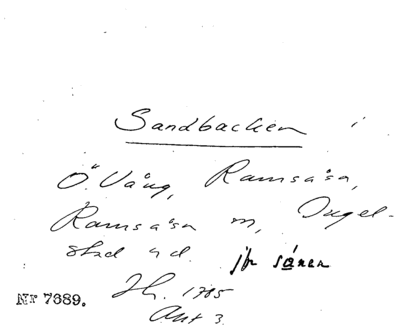 Sandbacken i
Ö. Vång, Ramsåsa,
Ramsåsa sn, Ingel-
stad hd. jfr sånen
Nr 7389. Jh. 1785
Akt 3.